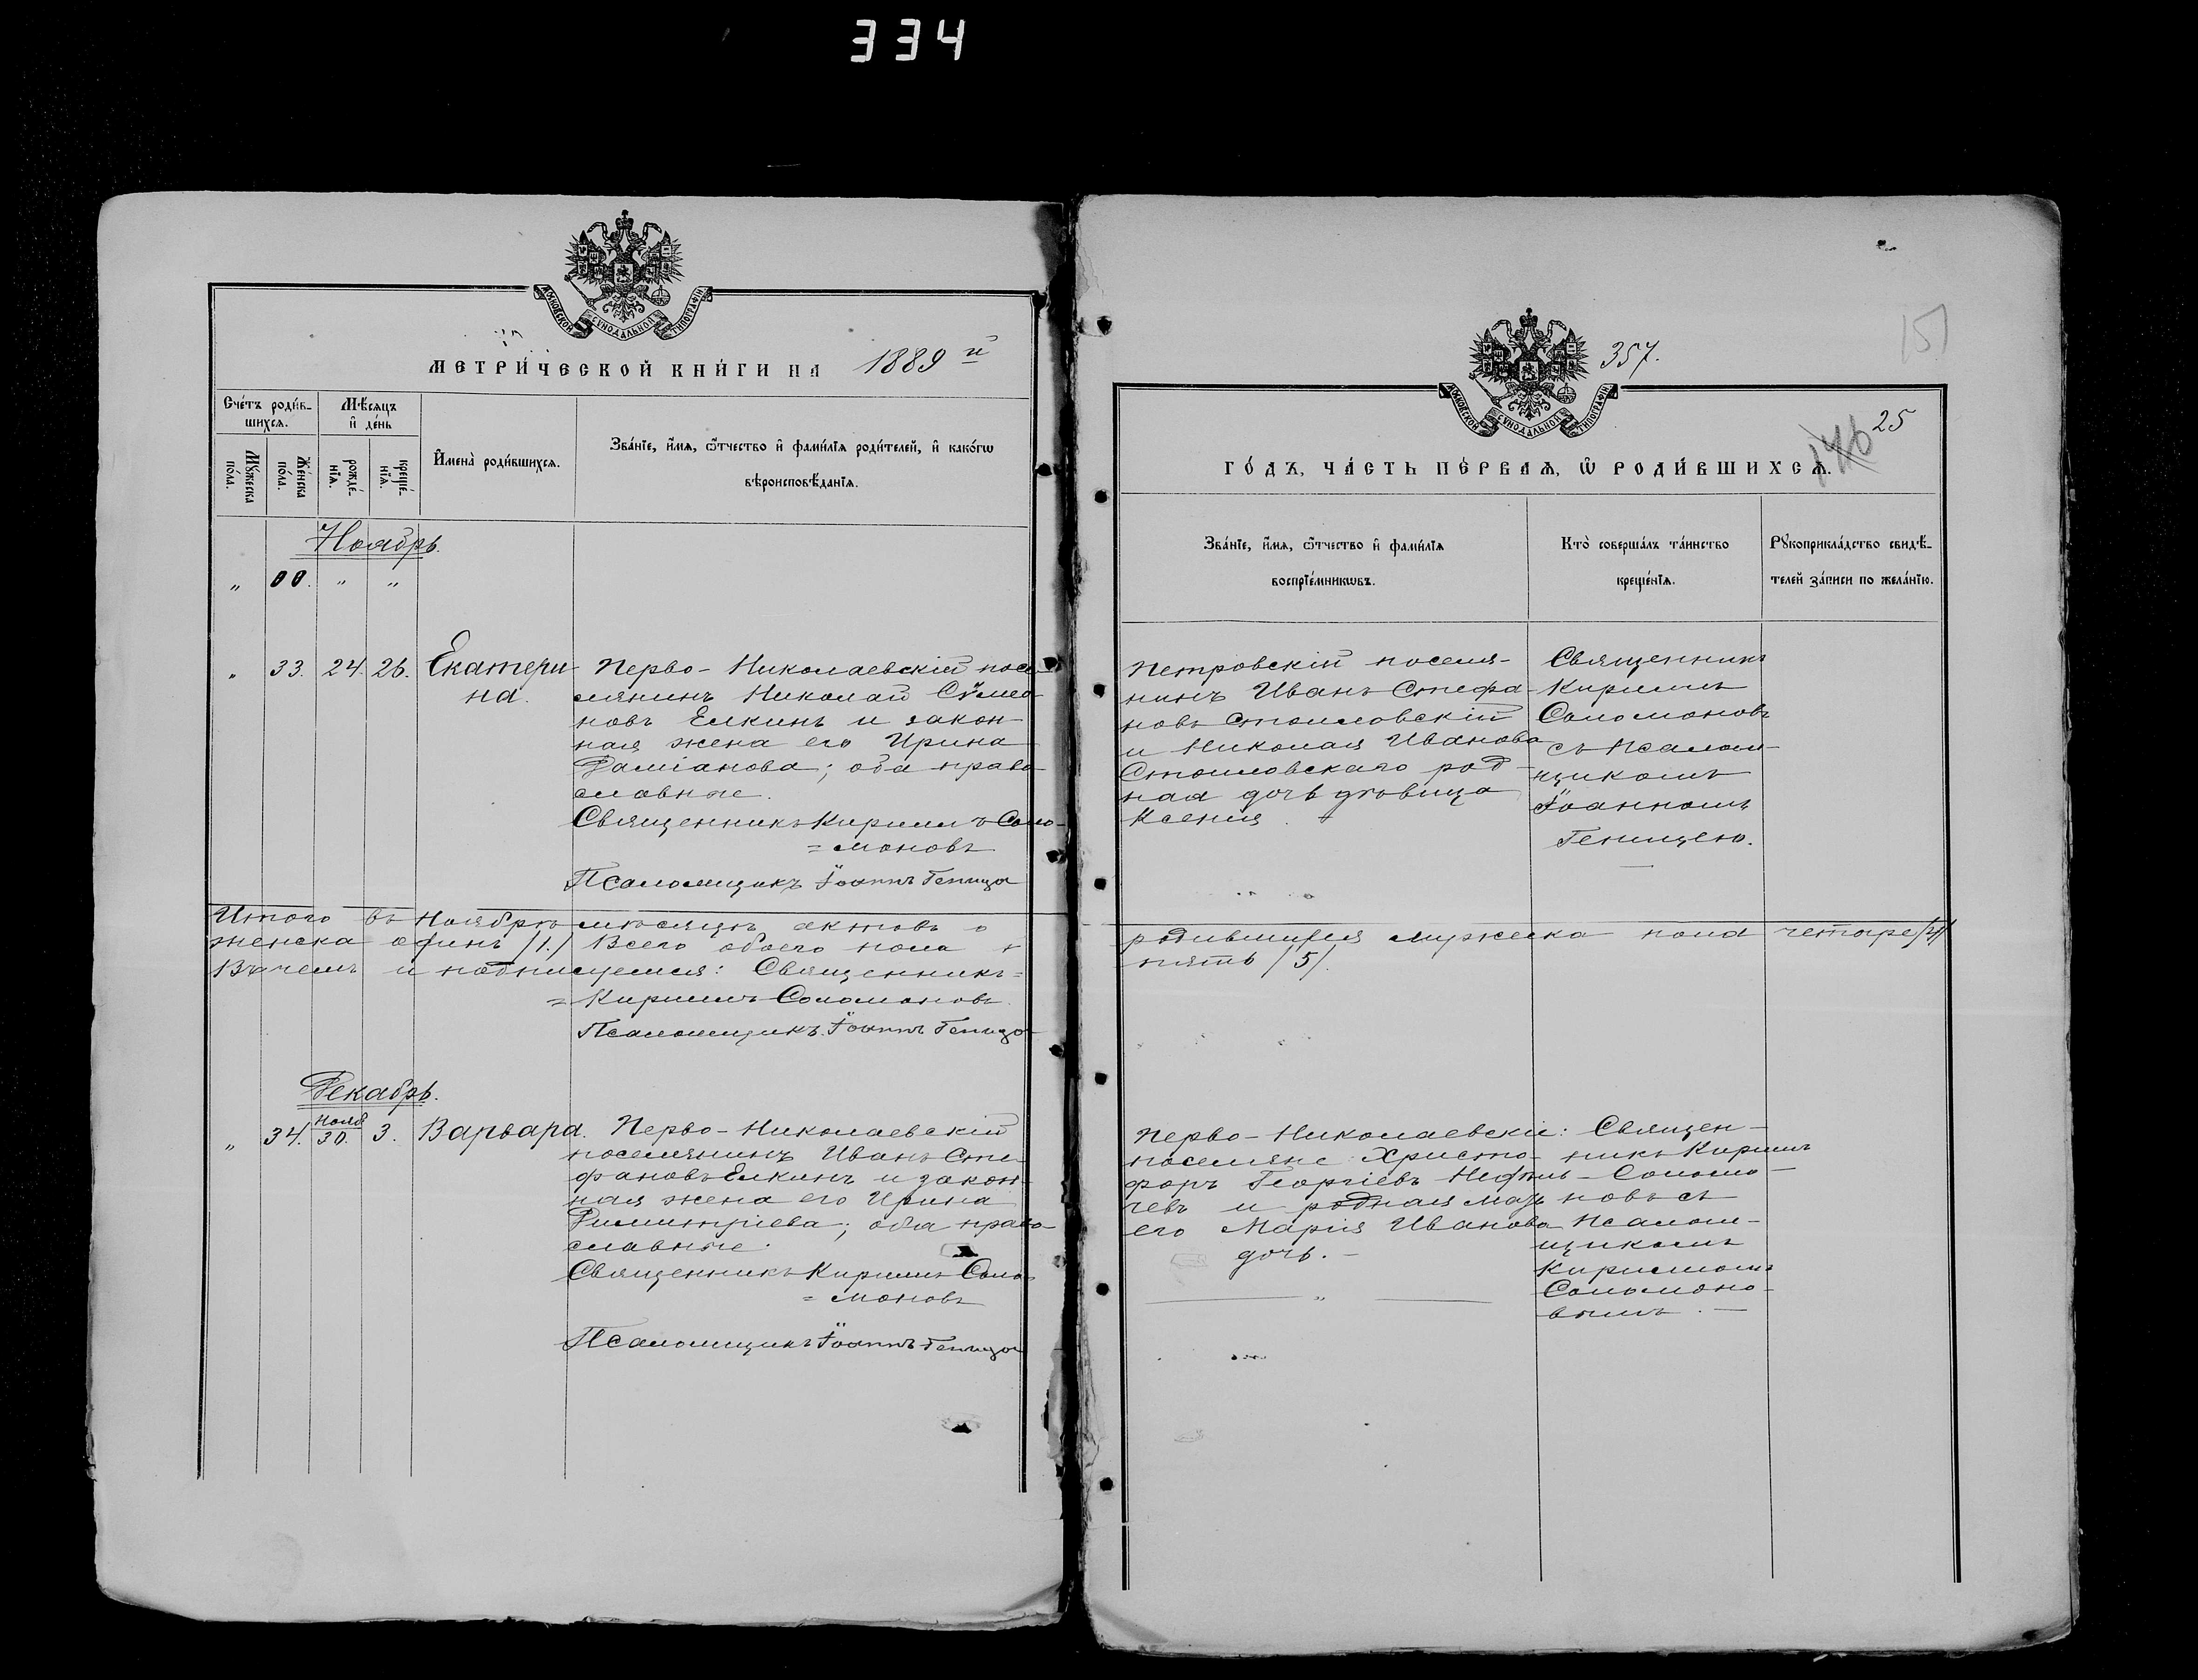 334
МОСКОВСКОЙ СѴНОДАЛЬНОЙ ТИПОГРАФІИ
МЕТРИ́ЧЕСКОЙ КНИ́ГИ НА 1889 й
Сче́тъ роди́в-
шихсѧ.
Мѣ́сѧцъ
и҆ де́нь
Мꙋ́жеска
по́ла.
Же́нска
по́ла.
рожде́-
нїѧ.
креще́-
нїѧ.
И҆мена̀ роди́вшихсѧ.
Зва́нїе, и҆́мѧ, ѻ҆́тчество и҆ фами́лїѧ роди́телей, и҆ како́гѡ
вѣроисповѣ́данїѧ.
Ноябрь.
" 00. " "
" 33. 24. 26. Екатери-
на.
Перво-Николаевскій посе-
лянинъ Николай Сѵмео-
новъ Елкинъ и закон-
ная жена его Ирина
Даміанова; оба право-
славные.
Священникъ Кириллъ Соло-
=моновъ
Псаломщикъ Іоаннъ Геница
Итого въ Ноябрѣ мѣсяцѣ актовъ о
женска одинъ /1./ Всего обоего пола
Въ чемъ и подписуемся: Священникъ=
=Кириллъ Соломоновъ.
Псаломщикъ Іоаннъ Геница
Декабрь.
" 34. Нояб 30. 3. Варвара.
Перво-Николаевскій
поселянинъ Иванъ Сте-
фановъ Елкинъ и закон-
ная жена его Ирина
Димитріева; оба право-
славные.
Священникъ Кириллъ Соло-
=моновъ
Псаломщикъ Іоаннъ Геница
357.
151
МОСКОВСКОЙ СѴНОДАЛЬНОЙ ТИПОГРАФІИ
146 25
ГО́ДЪ, ЧА́СТЬ ПЕ́РВАѦ, Ѡ҆ РОДИ́ВШИХСѦ.
Зва́нїе, и҆́мѧ, ѻ҆́тчество и҆ фами́лїѧ
воспрїе́мникѡвъ.
Кто̀ соверша́лъ та́инство
креще́нїѧ.
Рꙋкоприкла́дство свидѣ́-
телей за́писи по жела́нїю.
Петровскій поселя-
нинъ Иванъ Стефа-
новъ Стоиловскій
и Николая Иванова
Стоиловскаго род-
ная дочь дѣвица
Ксенія.
Священникъ
Кириллъ
Соломоновъ
съ Псалом-
щикомъ
Іоанномъ
Геницею.
родившихся мужеска пола четыре /4/
пять /5/.
Перво-Николаевскіе:
поселяне Христо-
форъ Георгіевъ
чевъ и родная мать
его Марія Иванова
дочь. –
Священ-
никъ Кириллъ
Соломо-
новъ съ
Псалом-
щикомъ
Кирилломъ
Соломоно-
вымъ. –